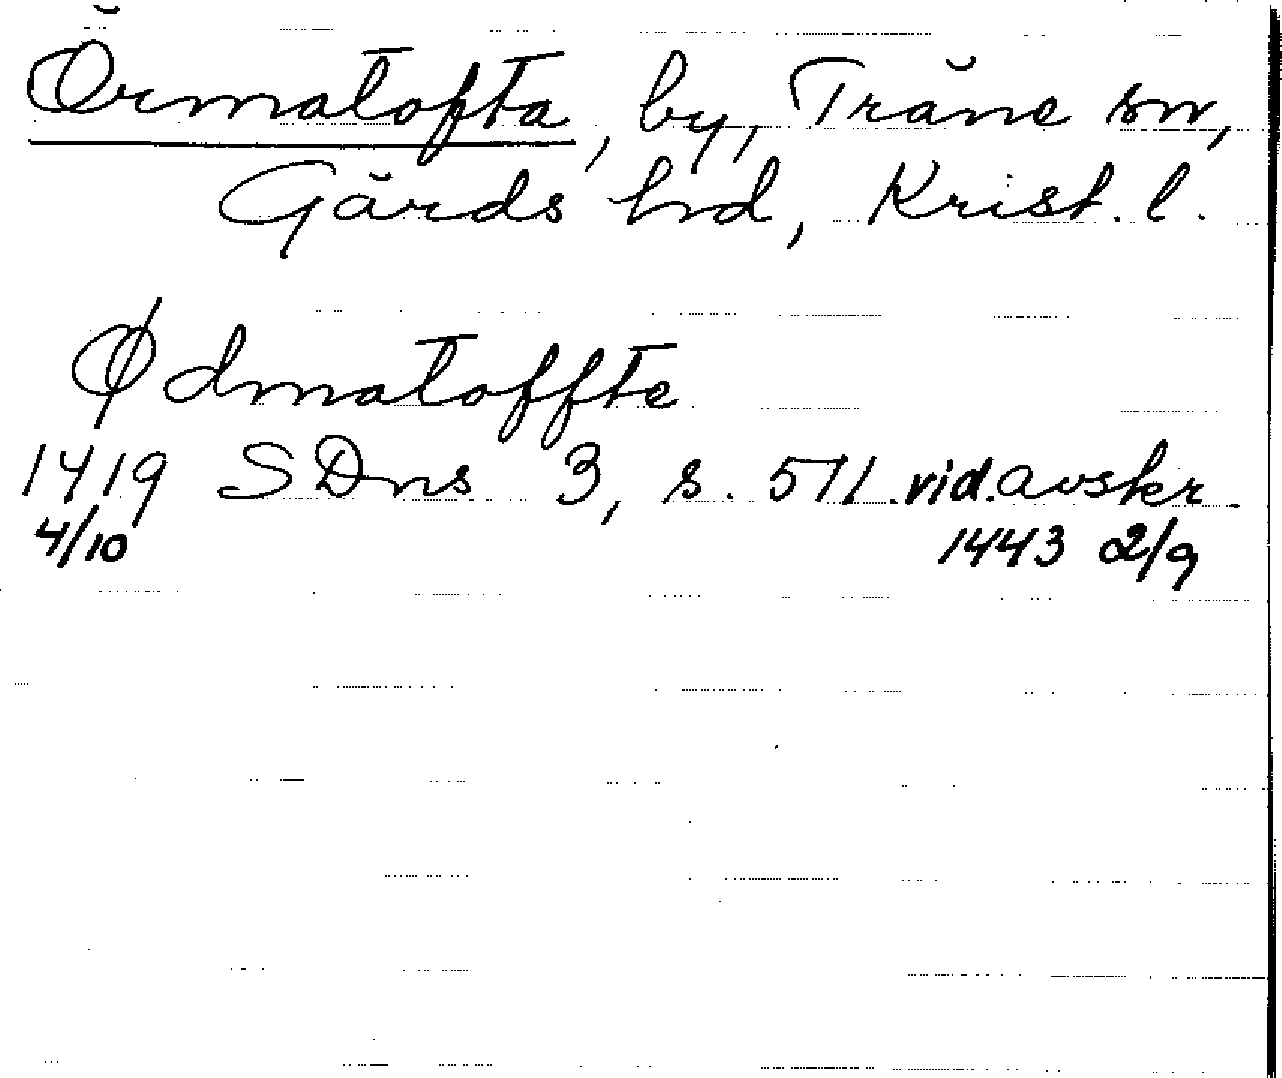 Örmatofta, by, Träne sn,
Gärds hd, Krist. l.
Ødmatoffte
1419 SDns 3, s. 511. vid. avskr.
4/10 1443 2/9